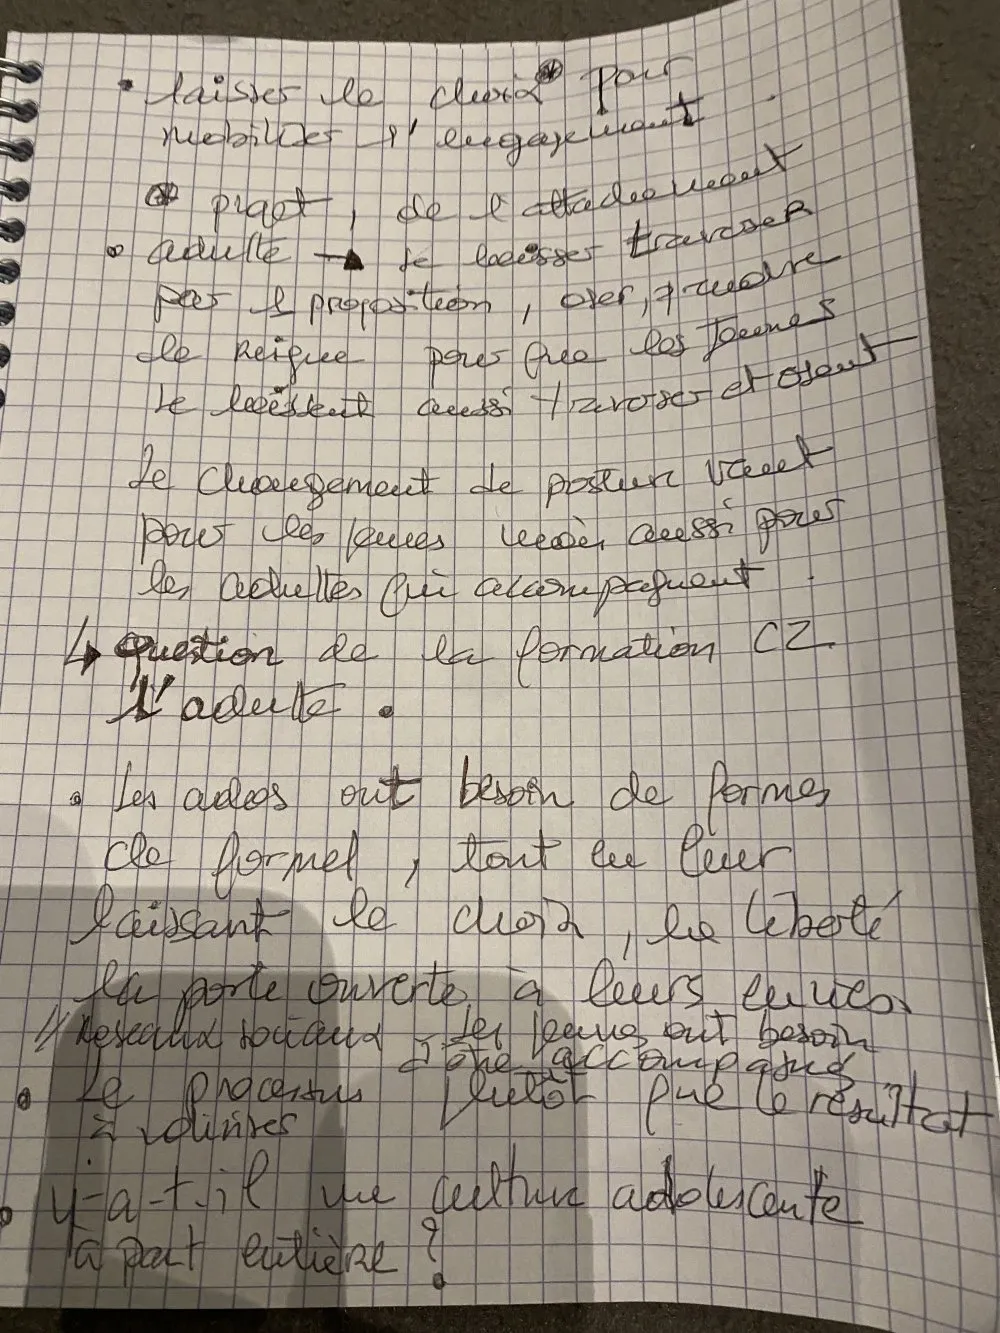 • laisser le choix pour
mobiliser l'engagement
projet, de l'attachement
• adulte → se laisser traverser
par l proposition, oser, prendre
le risque pour que les jeunes
se laissent aussi traverser et osent
Le changement de posture vaut
pour les jeunes mais aussi pour
les adultes qui accompagnent.
↳ question de la formation CZ
l'adulte.
• Les ados ont besoin de formes
de formel, tout en leur
laissant le choix, la liberté
la porte ouverte à leurs envies.
// Réseaux sociaux - les jeunes ont besoin
d'être accompagnés
• Le processus plutôt que le résultat
à valoriser
• y-a-t-il une culture adolescente
à part entière ?